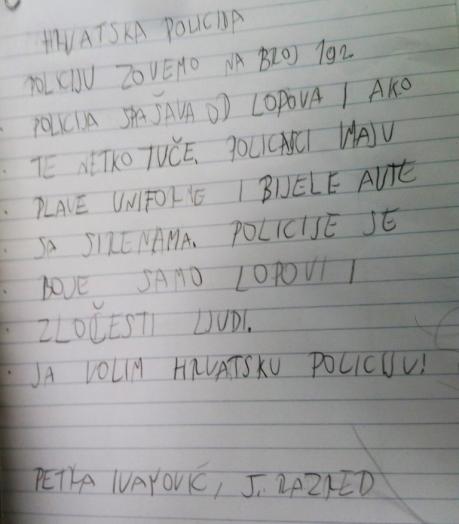 HRVATSKA POLICIJA
POLICIJU ZOVEMO NA BROJ 192
POLICIJA SPAŠAVA OD LOPOVA I AKO
TE NETKO TUČE. POLICAJCI IMAJU
PLAVE UNIFORME I BIJELE AUTE
SA SIRENAMA. POLICIJE SE
BOJE SAMO LOPOVI I
ZLOČESTI LJUDI.
JA VOLIM HRVATSKU POLICIJU!
PETRA IVANOVIĆ, J. RAZRED